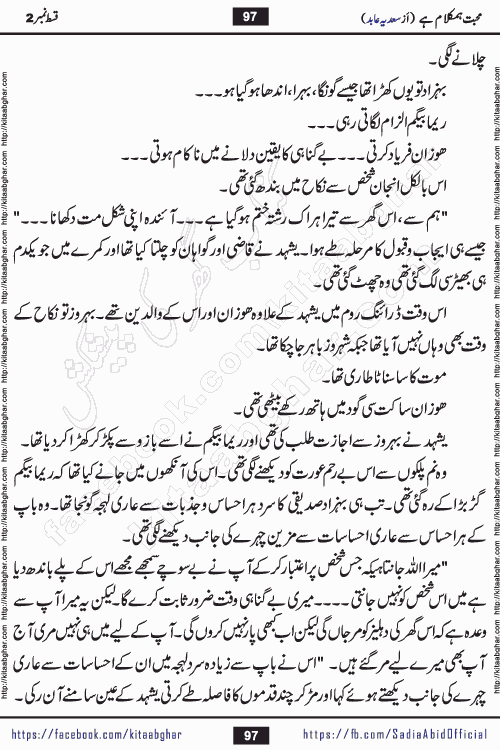 محبت ہمکلام ہے (از سعدیہ عابد)
97
قسط نمبر 2
چلانے لگی۔
بہزاد تو یوں کھڑا تھا جیسے گونگا، بہرا، اندھا ہو گیا ہو۔۔۔
ریما بیگم الزام لگاتی رہی۔۔۔
ھوزان فریاد کرتی۔۔۔ بے گناہی کا یقین دلانے میں ناکام ہوتی۔۔۔
اس بالکل انجان شخص سے نکاح میں بندھ گئی تھی۔
"ہم سے، اس گھر سے تیرا ہر اک رشتہ ختم ہو گیا ہے۔۔۔ آئندہ اپنی شکل مت دکھانا۔۔۔"
جیسے ہی ایجاب و قبول کا مرحلہ طے ہوا۔ یشہد نے قاضی اور گواہان کو چلتا کیا تھا اور کمرے میں جو یکدم
ہی بھیڑ سی لگ گئی تھی وہ چھٹ گئی تھی۔
اس وقت ڈرائنگ روم میں یشہد کے علاوہ ھوزان اور اس کے والدین تھے۔ بہروز تو نکاح کے
وقت بھی وہاں نہیں آیا تھا جبکہ شہروز باہر جا چکا تھا۔
موت کا سا سناٹا طاری تھا۔
ھوزان ساکت سی گود میں ہاتھ رکھے بیٹھی تھی۔
یشہد نے بہروز سے اجازت طلب کی تھی اور ریما بیگم نے اسے بازو سے پکڑ کر کھڑا کر دیا تھا۔
وہ نم پلکوں سے اس بے رحم عورت کو دیکھنے لگی تھی۔ اس کی آنکھوں میں جانے کیا تھا کہ ریما بیگم
گڑبڑا کے رہ گئی تھی۔ تب ہی بہزاد صدیقی کا سرد ہر احساس و جذبات سے عاری لہجہ گونجا تھا۔ وہ باپ
کے ہر احساس سے عاری احساسات سے مزین چہرے کی جانب دیکھنے لگی تھی۔
"میرا اللہ جانتا ہیکہ جس شخص پر اعتبار کر کے آپ نے بے سوچے سمجھے مجھے اس کے پلے باندھ دیا
ہے میں اس شخص کو نہیں جانتی۔۔۔۔ میری بے گناہی وقت ضرور ثابت کرے گا۔ لیکن یہ میرا آپ سے
وعدہ ہے کہ اس گھر کی دہلیز کو مر جاں گی لیکن اب کبھی پار نہیں کروں گی۔ آپ کے لیے میں ہی نہیں مری آج
آپ بھی میرے لیے مر گئے ہیں۔ "اس نے باپ سے زیادہ سرد لہجہ میں ان کے احساسات سے عاری
چہرے کی جانب دیکھتے ہوئے کہا اور مڑ کر چند قدموں کا فاصلہ طے کرتی یشہد کے عین سامنے آن رکی۔
https://facebook.com/kitaabghar
97
https://fb.com/SadiaAbidOfficial
http://kitaabghar.com http://kitaabghar.com http://kitaabghar.com http://kitaabghar.com http://kitaabghar.com http://kitaabghar.com